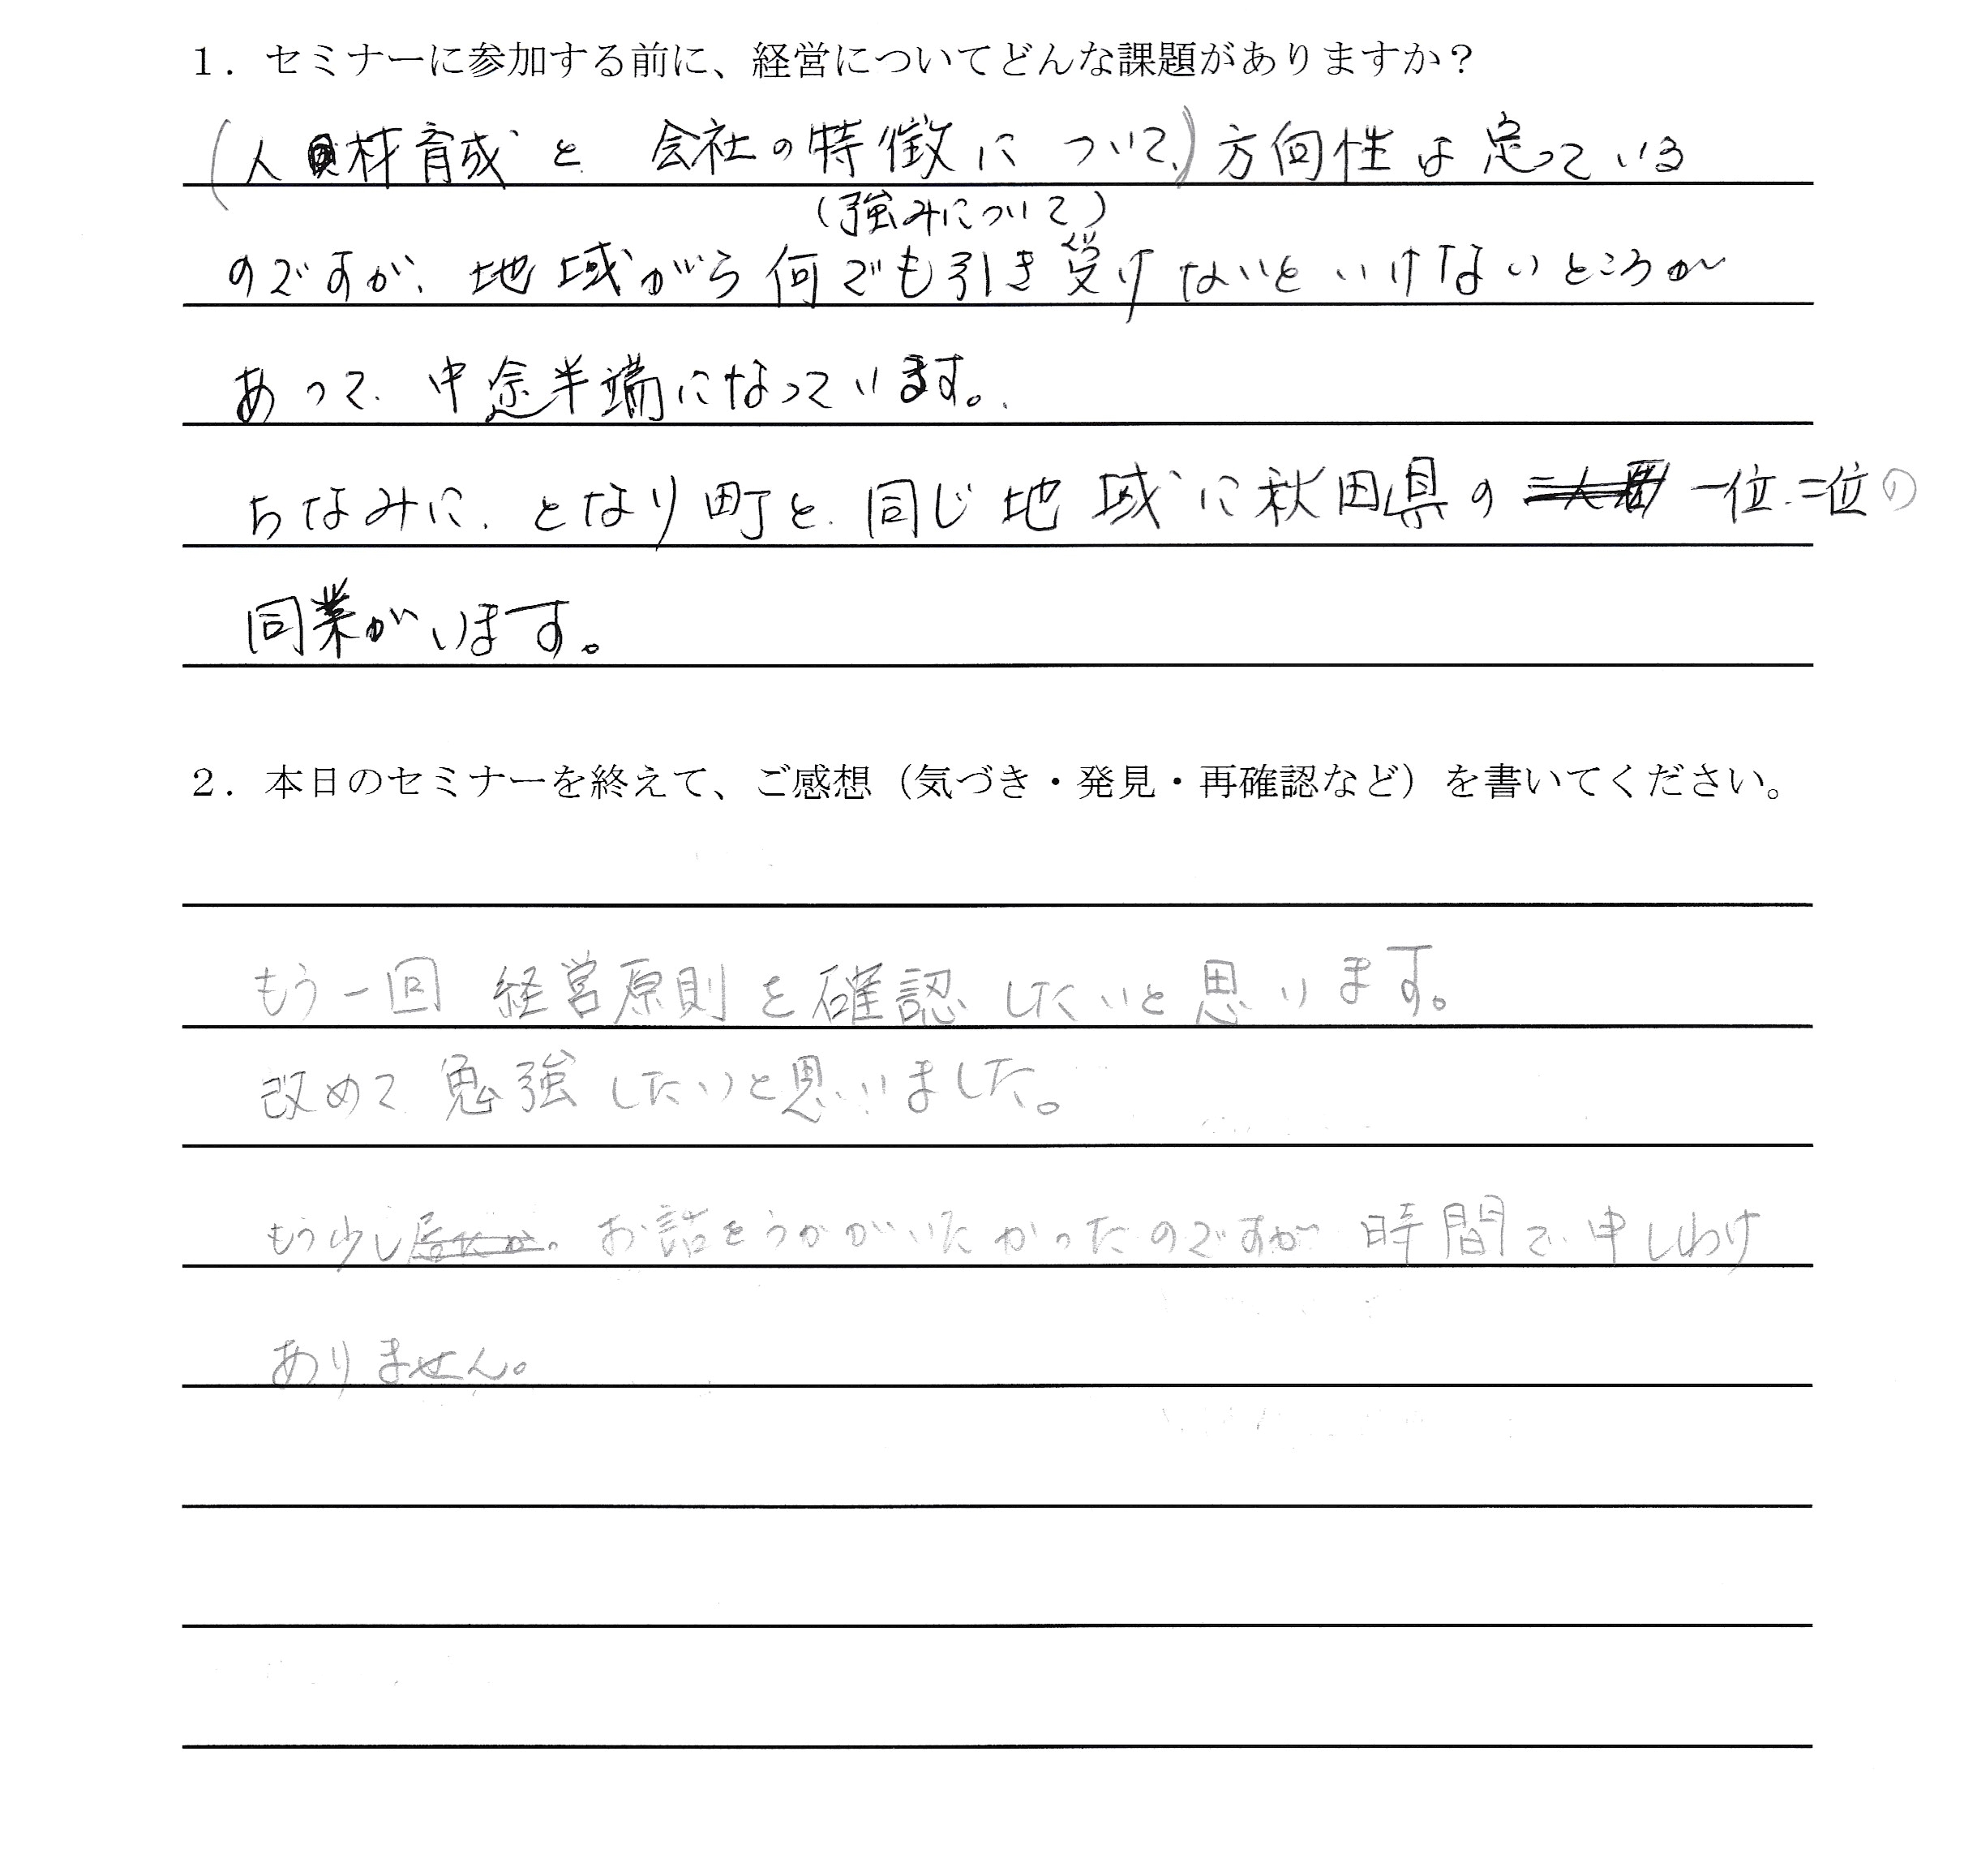 １．セミナーに参加する前に、経営についてどんな課題がありますか？
(人材育成と 会社の特徴について、)方向性は定っている
(強みについて)
のですが、地域がら何でも引き受けないといけないところが
あって、中途半端になっています。
ちなみに、となり町と、同じ地域に秋田県の 一位、二位の
同業がいます。
２．本日のセミナーを終えて、ご感想（気づき・発見・再確認など）を書いてください。
もう一回 経営原則を確認したいと思います。
改めて勉強したいと思いました。
もう少し お話をうかがいたかったのですが 時間で、申しわけ
ありません。